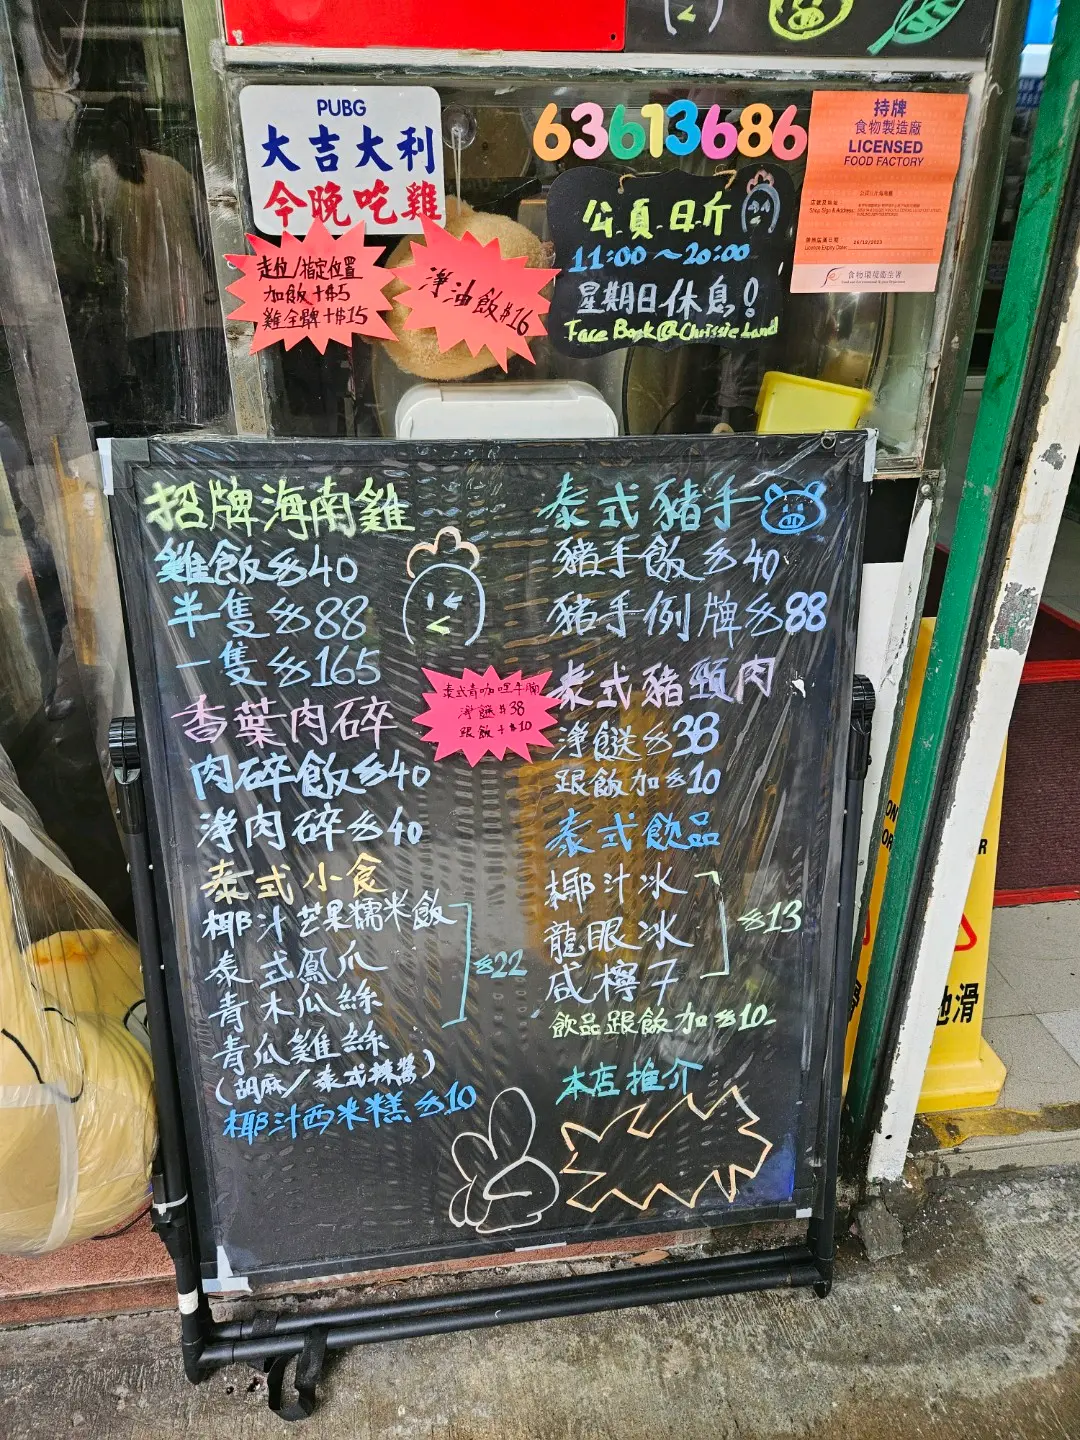 PUBG
大吉大利
今晚吃雞
走位/指定位置
加飯+$5
雞全髀+$15
淨油飯$16
63613686
公.頁.日.斤
11:00～20:00
星期日休息!
Face Book@Chrissie Land
持牌
食物製造廠
LICENSED
FOOD FACTORY
Shop Sign & Address:
Licence Expiry Date:
食物環境衞生署
招牌海南雞
雞飯$40
半隻$88
一隻$165
香葉肉碎
肉碎飯$40
淨肉碎$40
泰式小食
椰汁芒果糯米飯
泰式鳳爪
青木瓜絲
青瓜雞絲
(胡麻/泰式辣醬)
$22
椰汁西米糕$10
泰式青咖喱牛腩
淨餸$38
跟飯+$10
泰式豬手
豬手飯$40
豬手例牌$88
泰式豬頸肉
淨餸$38
跟飯加$10
泰式飲品
椰汁冰
龍眼冰
咸檸子
$13
飲品跟飯加$10-
本店推介
地滑